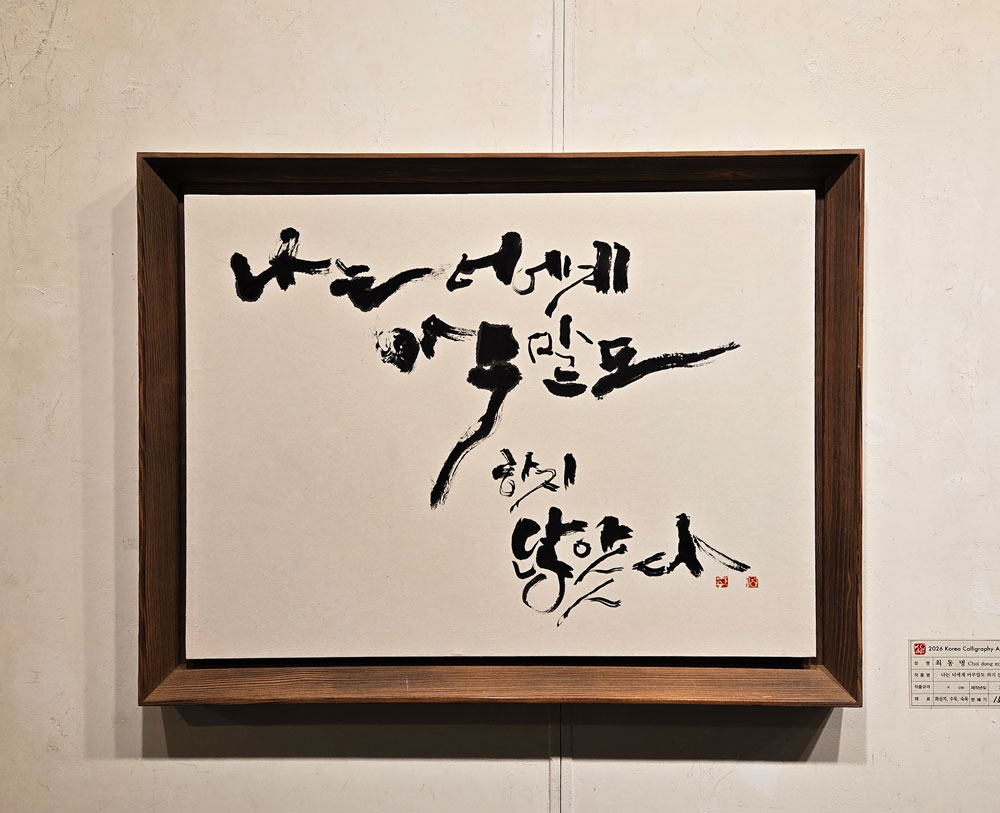 나는 너에게
아무말도
하지
않았다
2026 Korea Calligraphy
성 명 최 동 명 Choi dong
작품명 나는 너에게 아무말도 하지
작품규격 × cm 제작년도
재 료 화선지, 수묵, 숙묵 판매가